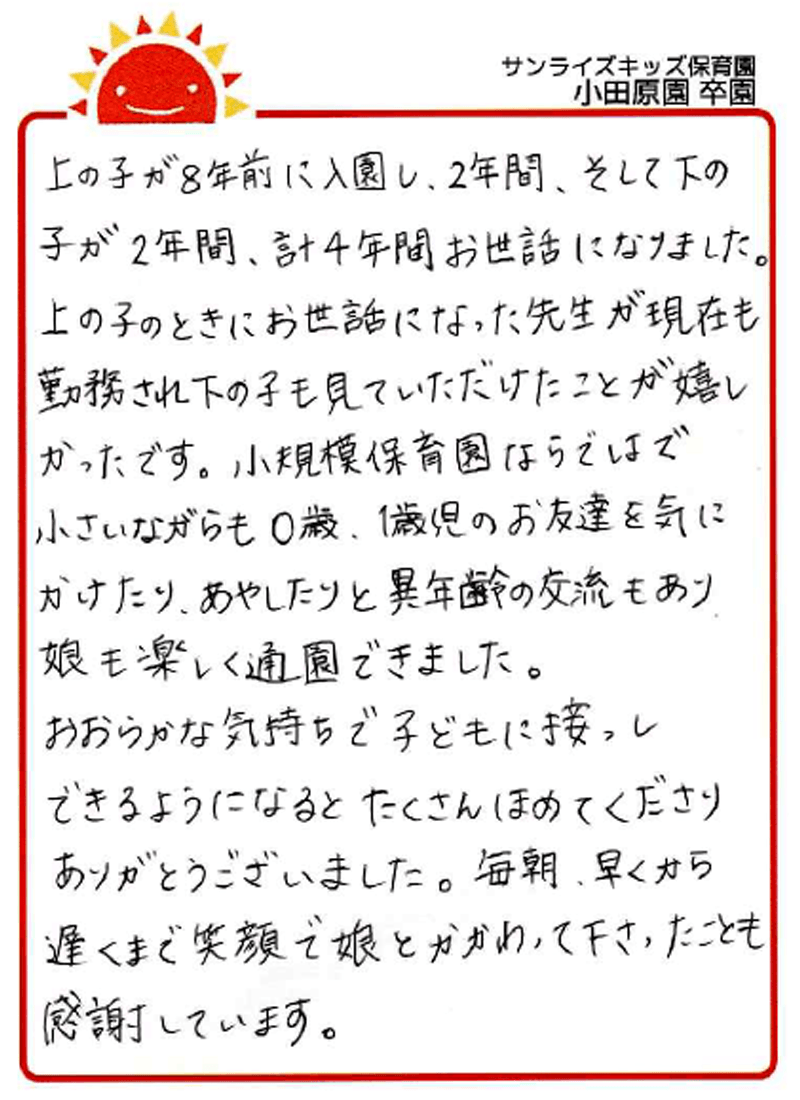 サンライズキッズ保育園
小田原園 卒園
上の子が8年前に入園し、2年間、そして下の
子が2年間、計4年間お世話になりました。
上の子のときにお世話になった先生が現在も
勤務され下の子も見ていただけたことが嬉し
かったです。小規模保育園ならではで
小さいながらも0歳、1歳児のお友達を気に
かけたり、あやしたりと異年齢の交流もあり
娘も楽しく通園できました。
おおらかな気持ちで子どもに接っし
できるようになるとたくさんほめてくださり
ありがとうございました。毎朝、早くから
遅くまで笑顔で娘とかかわって下さったことも
感謝しています。